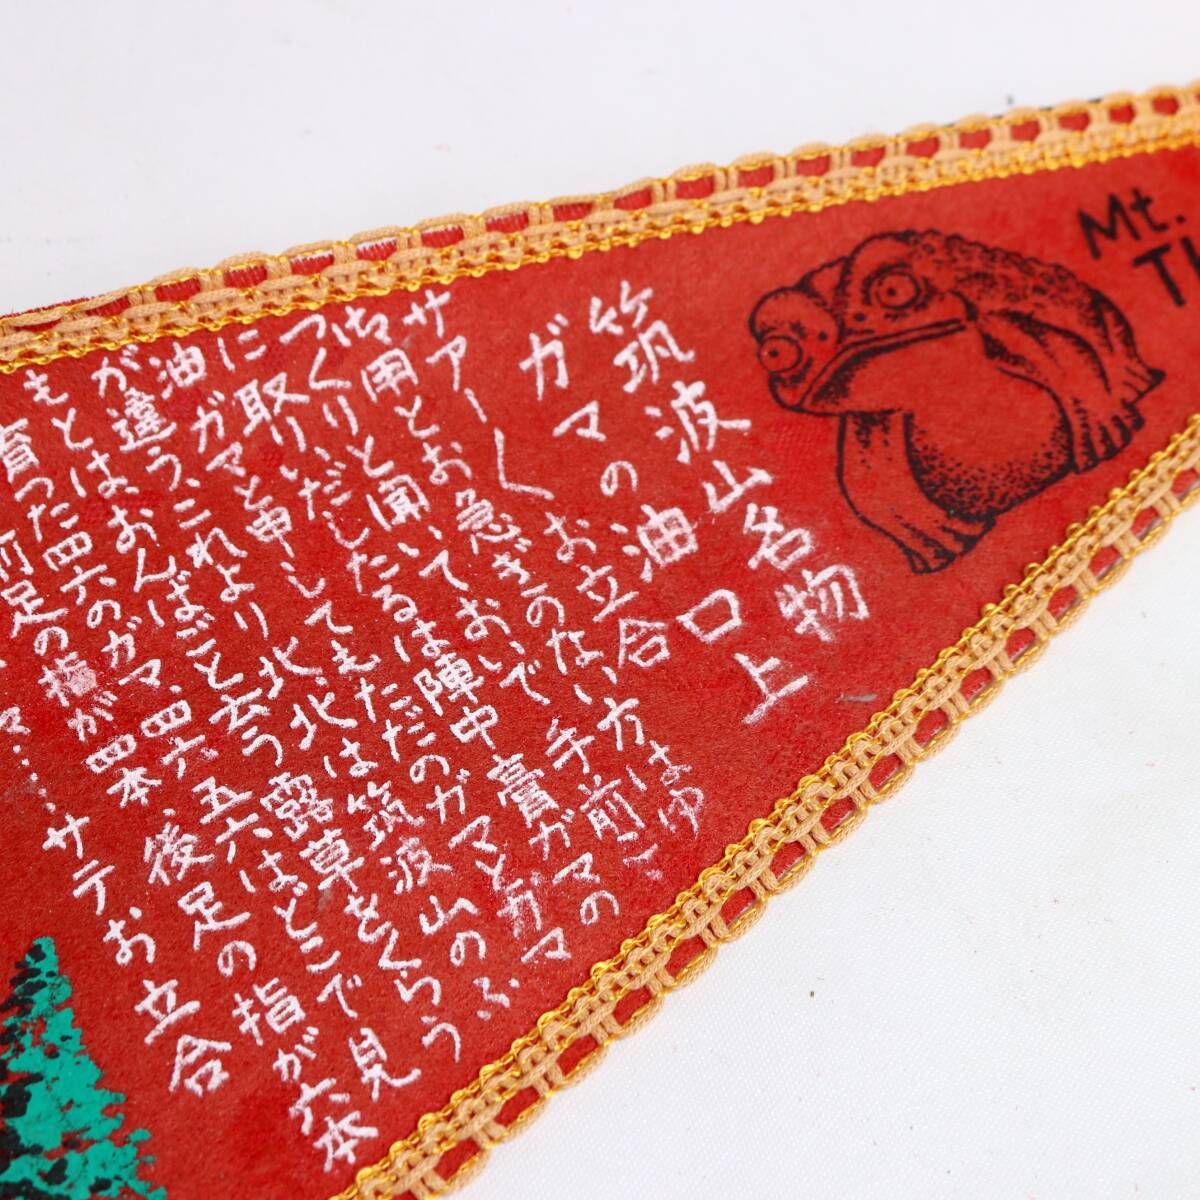 Mt.
筑波山名物
ガマの油口上
サアー〱お立合
御用とお急ぎのない方はゆ
つくりと聞いておいで手前、
に取りいだしたるは陣中膏ガマの
油ガマと申してもただのガマとガマ
が違う、これより北、北は筑波山のふ
もとは、おんばごと云う露草をくらう
育った四六のガマ、四六、五六はどこで見
前足の指が四本、後足の指が六本
マ....サテお立合